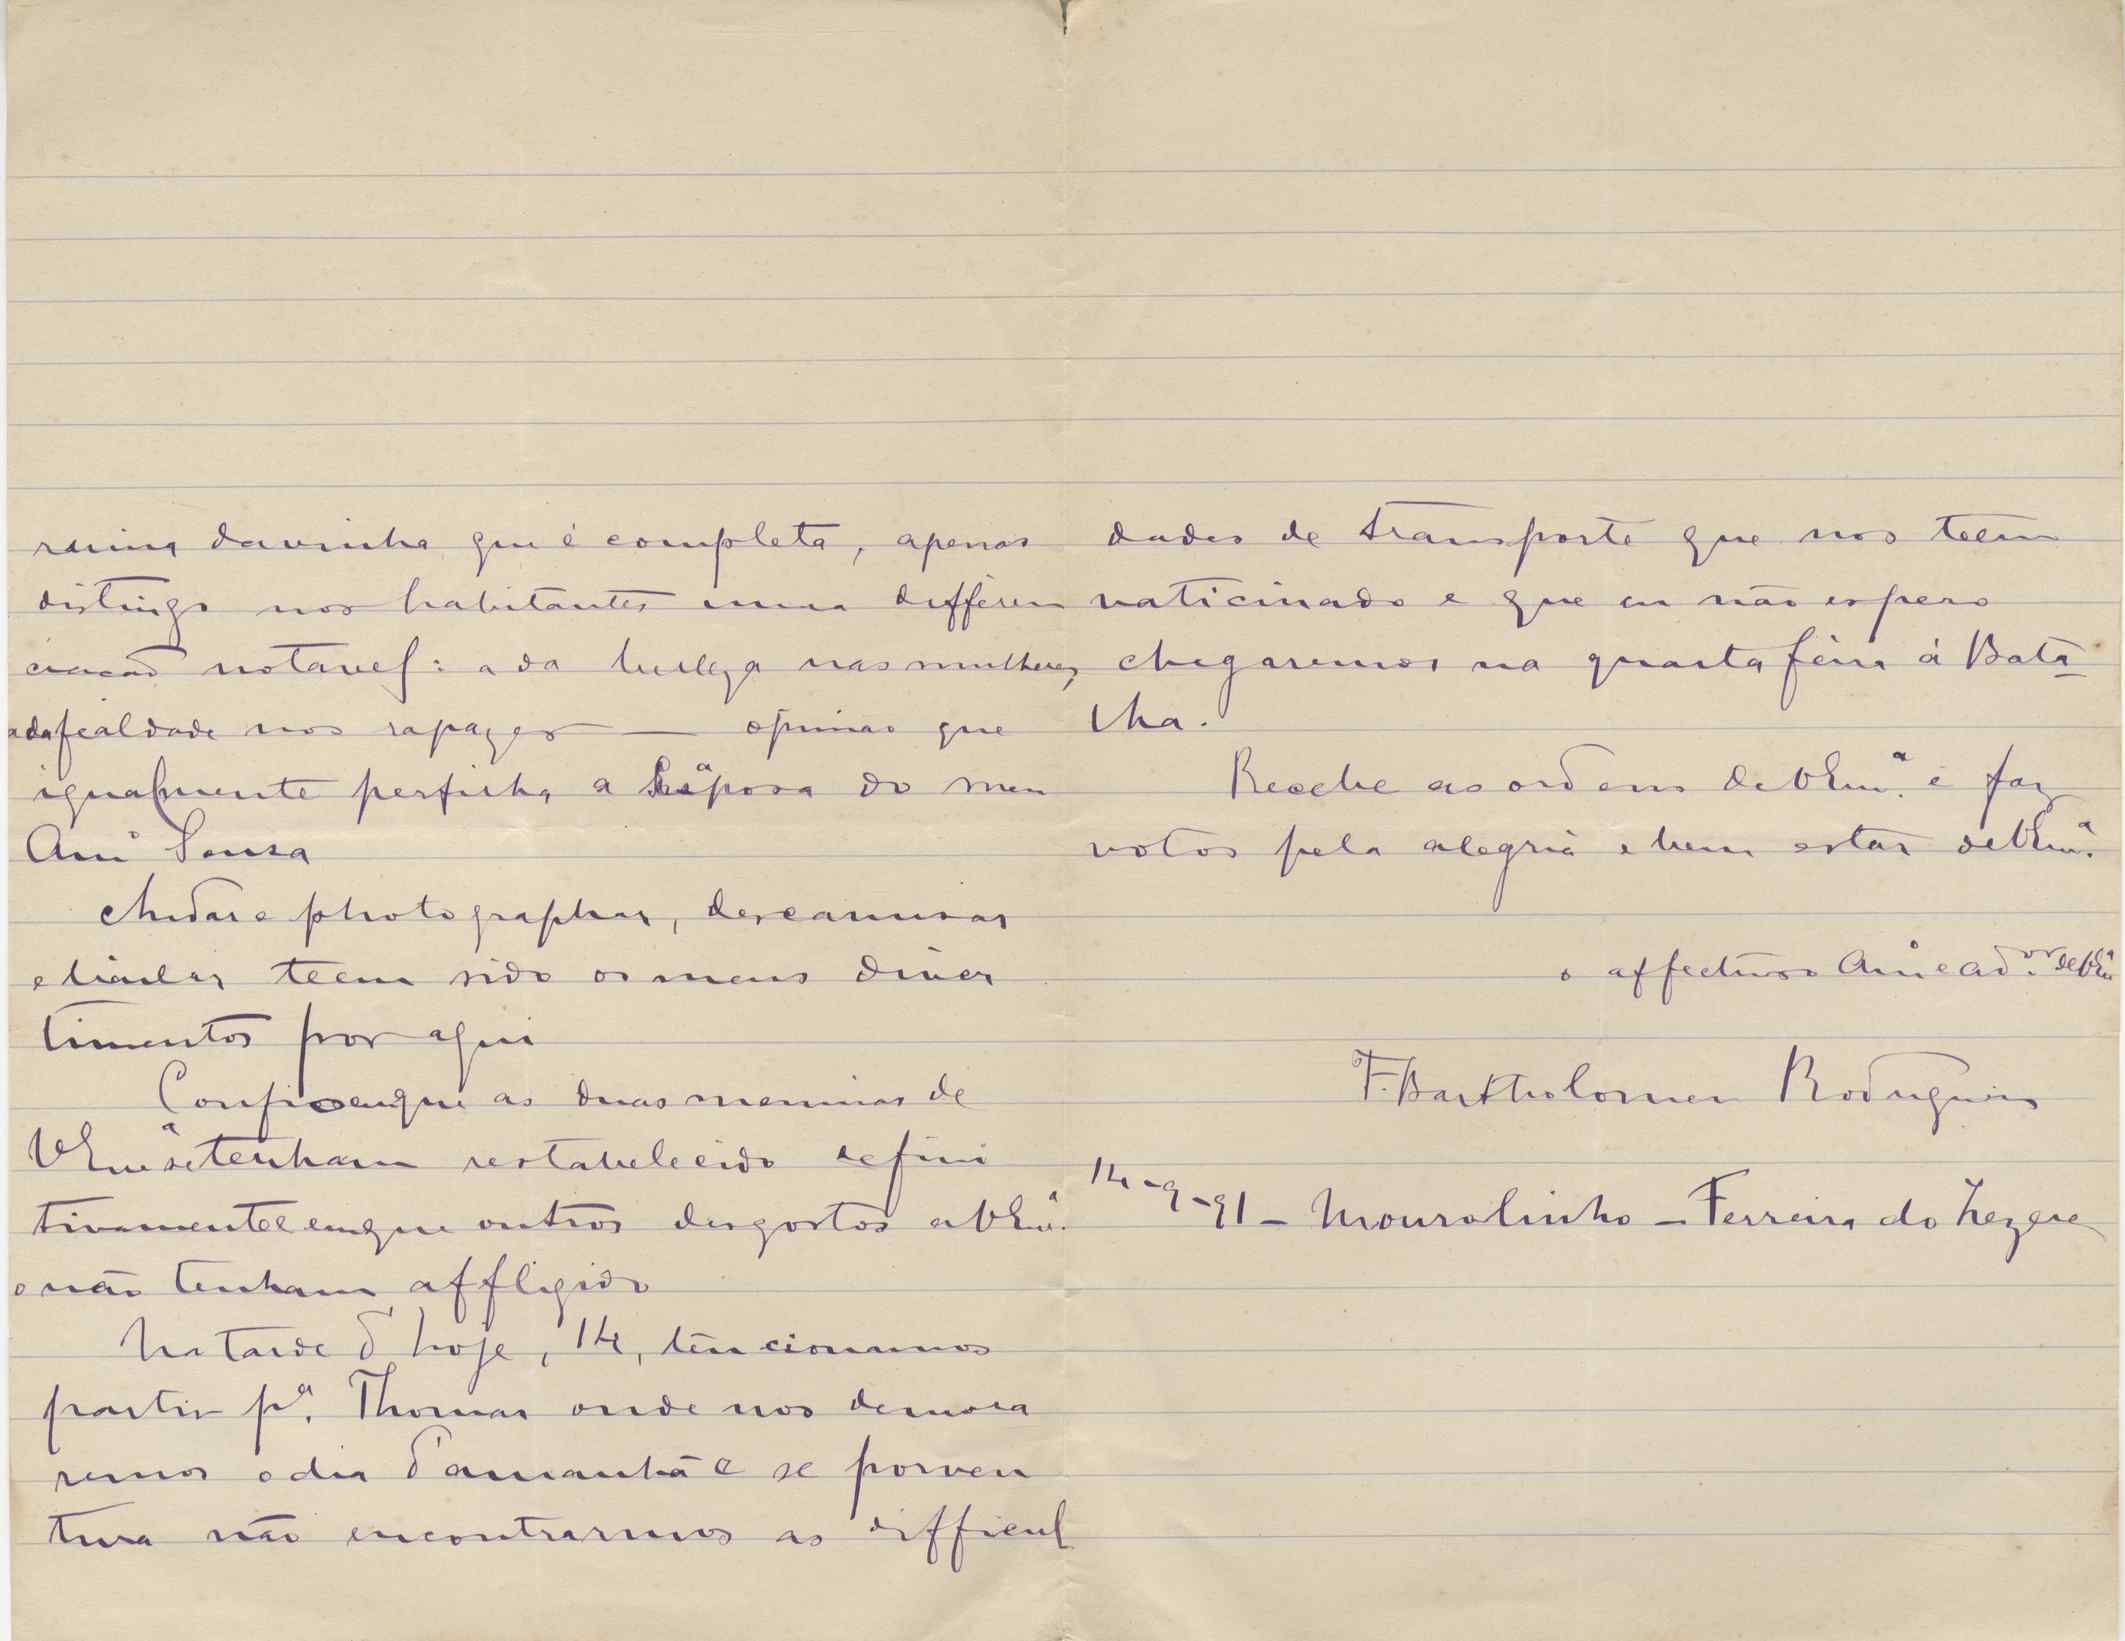 ruina da vinha que é completa, apenas
distingo nos habitantes uma differen
ciação notavel: a da belleza nas mulheres,
a da fealdade nos rapazes — opinião que
igualmente perfilha a esposa do meu
Amº Sousa
Andar e photographar, descançar
e teem sido os meus diver
timentos por aqui
Confio em que as duas meninas de
VExª se tenham restabelecido defini
tivamente e em que outros desgostos a VExª
o não tenham affligido
Na tarde d'hoje, 14, tencionamos
partir pª. Thomar onde nos demora
remos o dia d'amanhã e se porven
tura não encontrarmos as difficul
dades de transporte que nos teem
vaticinado e que eu não espero
chegaremos na quarta feira á Bata
lha.
Recebe as ordens de VExª e faz
votos pela alegria e bem estar de VExª
o affectuoso Amº e adᵒʳ de VExª
F. Bartholomeu Rodrigues
14-9-91 - Mourolinho - Ferreira do Zezere